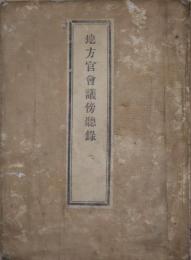 地方官會議傍聽錄 一